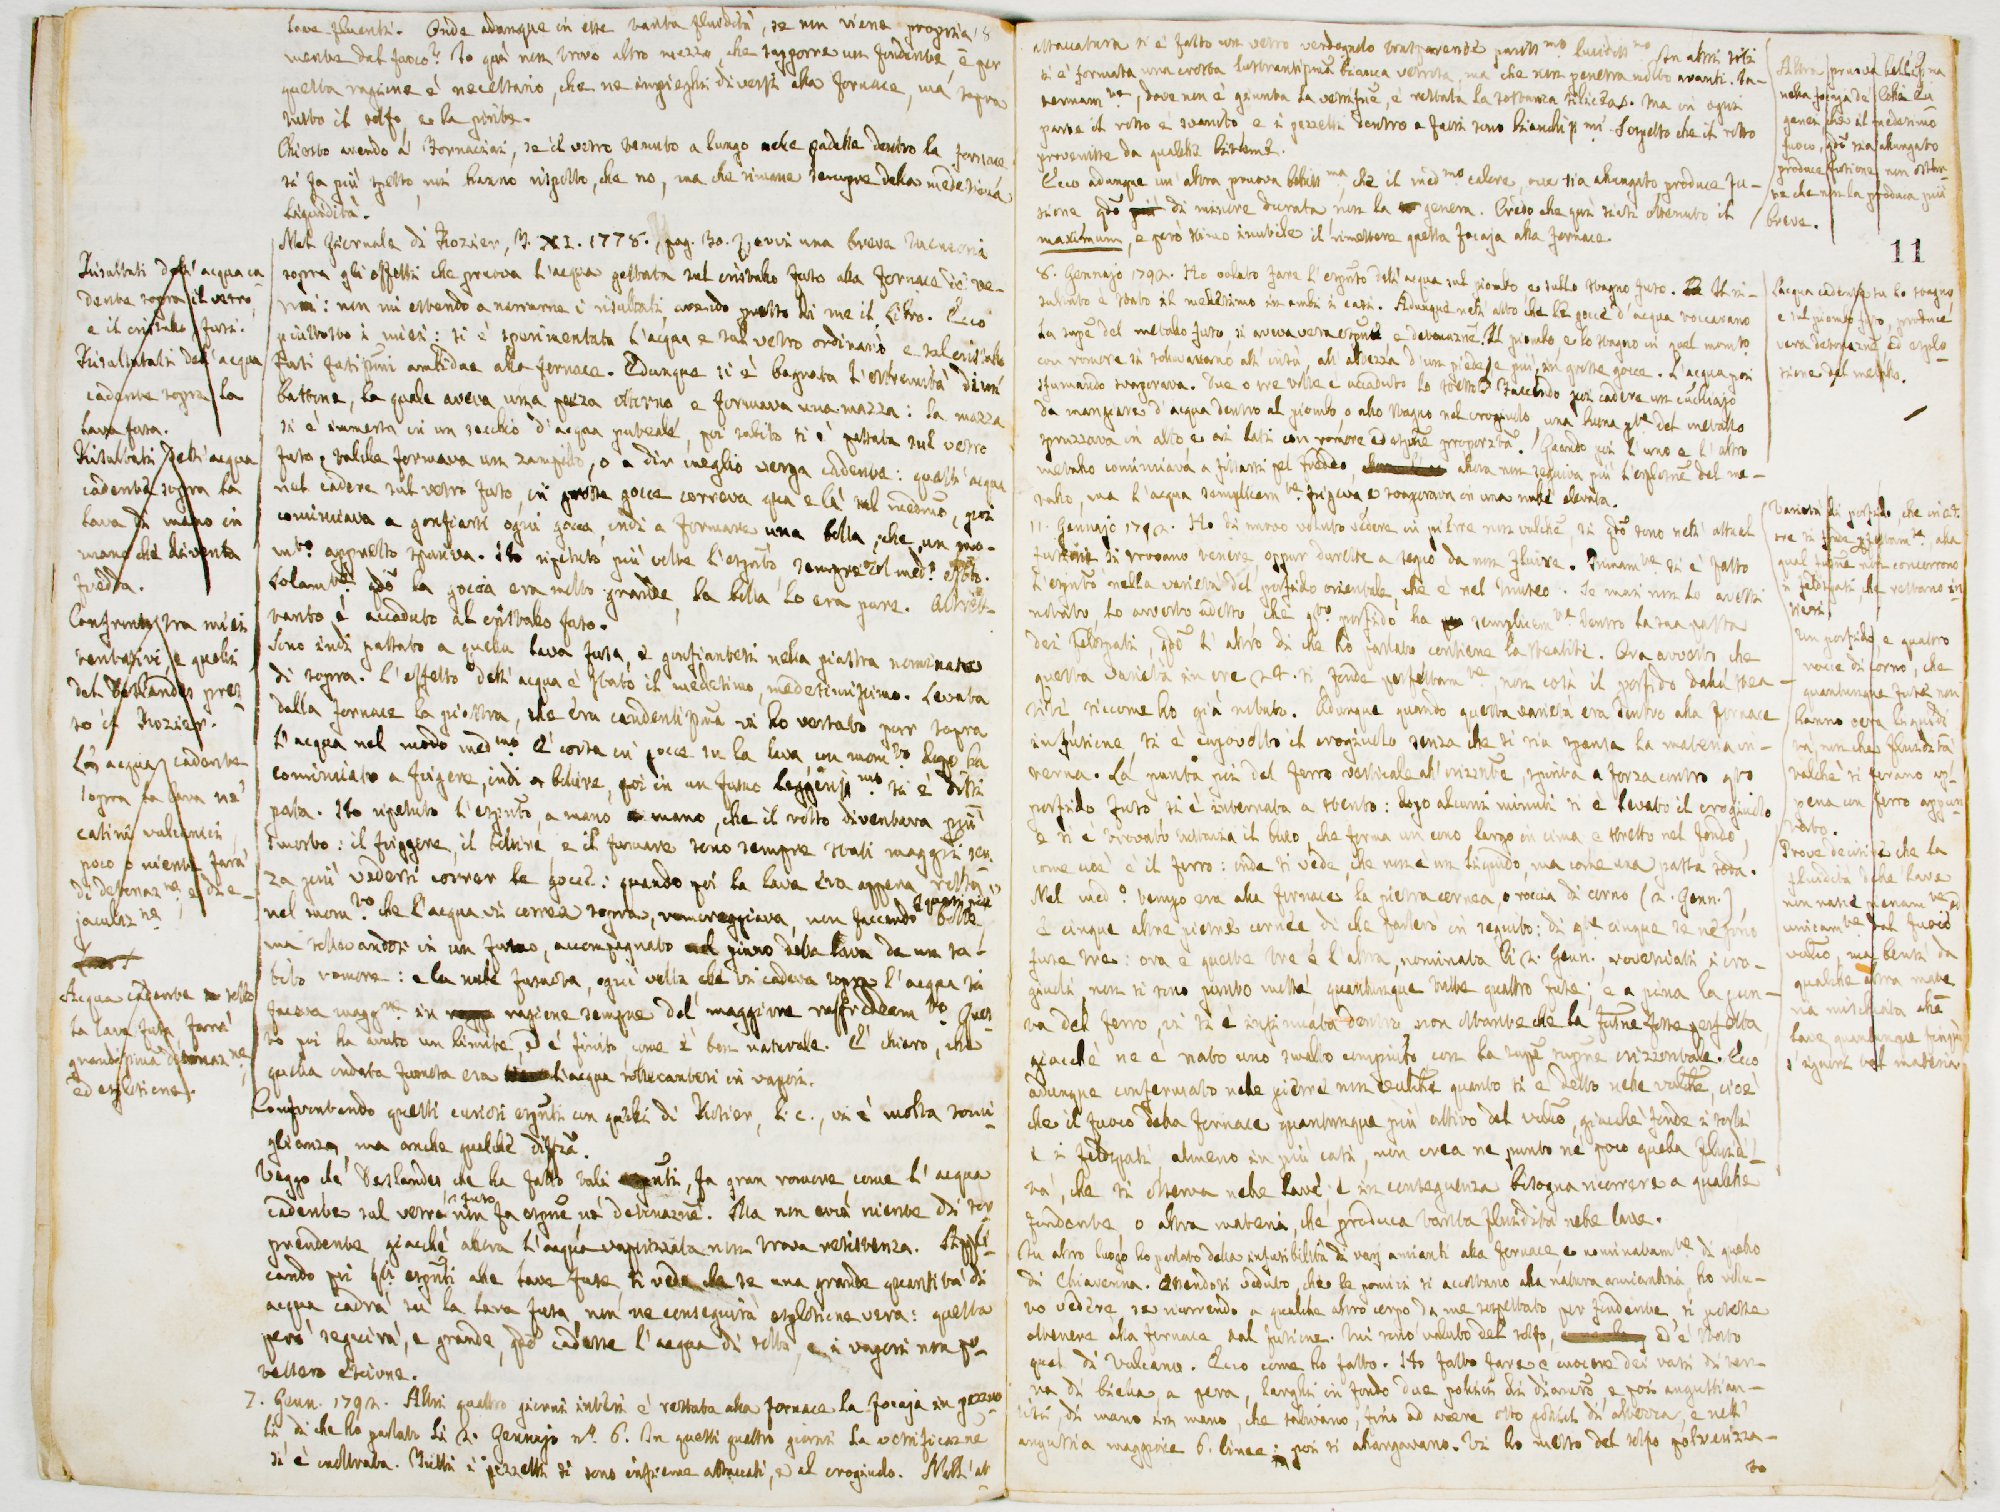 lave fluenti. Onde adunque in esse tanta fluidità, se non viene propria 18
mente dal fuoco? Io quì non trovo altro mezzo, che supporre un fondente, e per
questa ragione è necessario, che ne impieghi diversi alla fornace, ma sopra
tutto il solfo, e la pirite.
Chiesto avendo a' Fornaciai, se il vetro tenuto a lungo nelle padelle dentro la fornace
si fa più spesso, mi hanno risposto, che no, ma che rimane sempre della medesima
liquidità.
Nel Giornale di Rozier, T. XI. 1778. pag. 30. evvi una breve
sopra gli effetti che pruova l'acqua gettata sul cristallo fuso alla fornace di ve-
tri: non mi estendo a narrarne i risultati, avendo presso di me il Libro. Ecco
piuttosto i miei: si è sperimentata l'acqua e sul vetro ordinario e sul cristallo
fusi amendue alla fornace. Adunque si è bagnata l'estremità di un
bastone, la quale aveva una pezza attorno e formava una mazza: la mazza
si è immersa in un secchio d'acqua puteale, poi subito si è passata sul vetro
fuso, talchè formava un zampillo, o a dir meglio verga cadente: quest'acqua
nel cadere sul vetro fuso, in grosse gocce correva qua e là sul medmo, poi
cominciava a gonfiarsi ogni gocca, indi a formare una bolla, che un mo-
mto appresso spariva. Ho ripetuto più volte l'esperto, sempre col medo effetto.
Solamte qdo la goccia era molto grande, la bolla lo era pure. Altret-
tanto è accaduto al cristallo fuso.
Sono indi passato a quella lava fusa, e gonfiantesi nella piastra nominata
di sopra. L'effetto dell'acqua è stato il medesimo, medesimissimo. Levata
dalla fornace la piastra, che era candentissima vi ho versato pur sopra
l'acqua nel modo medmo. È corsa in gocce su la lava, un momto dopo ha
cominciato a friggere, indi a bollire, poi in un fumo leggerissmo si è dissi
pata. Ho ripetuto l'esperto, a mano a mano, che il rosso diventava più
smorto: il friggere, il bollire e il fumare sono sempre stati maggiori sen-
za più vedersi correr le gocce: quando poi la lava era appena rossa,
nel momto che l'acqua vi correa sopra, romoreggiava, non facendo quasi più bolle
ma sollevandosi in un fumo, accompagnato nel piano della lava da un su-
bito romore: e la nube fumosa, ogni volta che vi cadeva sopra l'acqua si
faceva maggre in ragione sempre del maggiore raffreddamto. Ques-
to poi ha avuto un limite, ed è finito come è ben naturale. È chiaro, che
quella ondata fumosa era l'acqua sollevantesi in vapori.
Confrontando questi curiosi esperti con quelli di Rozier, l. c., vi è molta somi
glianza, ma anche qualche diffza.
Veggo che Deslandes che ha fatto tali esperti, fa gran romore come l'acqua
cadente sul vetro fuso non fa esplne nè detonazne. Ma non evvi niente di sor-
prendente giacchè allora l'acqua vaporizzata non trova resistenza. Appli-
cando poi gli esperti alle lave fuse, si vede che se una grande quantità di
acqua cadrà su la lava fusa, non ne conseguirà esplosione vera: questa
però seguirà, e grande, qdo cadesse l'acqua di sotto, e i vapori non po-
tessero escirne.
7. Genn. 1792. Altri quattro giorni interi è restata alla fornace la focaja in pezzuo
li di che ho parlato li 2. Gennajo no. 6. In questi quattro giorni la vetrificazne
si è inoltrata. Tutti i pezzetti si sono insieme attaccati, e al crogiuolo. Nell'at
Risultati dell'acqua ca
dente sopra il vetro,
e il cristallo fusi.
Risultati dell'acqua
cadente sopra la
lava fusa.
Risultati dell'acqua
cadente sopra la
lava di mano in
mano che diventa
fredda.
Confronto tra miei
tentativi e quelli
del Deslandes pres
so il Rozier.
L'acqua cadente
sopra la lava ne'
catini vulcanici,
poco o niente farà
di detonazne, e di e-
jaculazne.
Acqua cadente sotto
la lava fusa farà
grandissima detonazne,
ed esplosione.
attaccatura si è fatto un vetro verdognolo trasparente purissmo lucidissmo. In altri siti
si è formata una crosta lustrantissima bianca vetrosa, ma che non penetra molto avanti. In-
ternamte, dove non è giunta la vetrifne, è restata la sostanza silicea. Ma in ogni
parte il rosso è svanito, e i pezzetti dentro e fuori sono bianchissmi. Sospetto che il rosso
provenisse da qualche bitume.
Ecco adunque un'altra pruova bellissma, che il medmo calore, ove sia allungato produce fu-
sione qdo di minore durata non la genera. Credo che quì siasi ottenuto il
maximum, e però stimo inutile il rimettere questa focaja alla fornace.
8. Gennajo 1792. Ho voluto fare l'esperto dell'acqua sul piombo, e sullo stagno fuso. Il ri-
sultato è stato il medesimo in ambi i casi. Adunque nell'atto che le gocce d'acqua toccavano
la supe del metallo fuso, si aveva vera esplne e detonazne. Il piombo e lo stagno in quel momto
con romore si sollevavano all'insù, all'altezza d'un piede e più, in grosse gocce. L'acqua poi
sfumando svaporava. Due o tre volte è accaduto lo stesso. Facendo poi cadere un cucchiajo
da mangiare d'acqua dentro al piombo o allo stagno nel crogiuolo, una buona pte del metallo
spruzzava in alto e ai lati con romore ed esplne proporzta. Quando poi l'uno e l'altro
metallo cominciava a fissarsi pel freddo, allora non seguiva più l'esplosne del me-
tallo, ma l'acqua semplicemte friggeva e svaporava in una nube elevata.
11. Gennajo 1792. Ho di nuovo voluto vedere in pietre non vulche, se qdo sono nell'attual
fusione si trovano tenere oppur durette a segno da non fluire. Primamte si è fatto
l'esperto nella varietà del porfido orientale, che è nel Museo. Se mai non lo avessi
notato, lo avverto adesso, che qto porfido ha semplicemte dentro la sua pasta
dei feldspati, qdo l'altro di che ho parlato contiene la steatite. Ora avverto che
questa varietà in ore 24. si fonde perfettamte, non così il porfido dalla stea-
tite, siccome ho già notato. Adunque quando questa varietà era dentro alla fornace
in fusione, si è capovolto il crogiuolo senza che si sia spanta la materia in-
terna. La punta poi del ferro verticale all'orizzonte, spinta a forza contro qto
porfido fuso si è internata a stento: dopo alcuni minuti si è levato il crogiuolo
e si è trovato il buco, che forma un cono largo in cima e stretto nel fondo,
come cioè è il ferro: onde si vede, che non è un liquido, ma come una pasta soda.
Nel medo tempo era alla fornace la pietra cornea, o roccia di corno (2. Genn.),
e cinque altre pietre cornee di che parlerò in seguito: di qte cinque se ne sono
fuse tre: ora e queste tre e l'altra, nominata li 2. Genn., rovesciati i cro-
giuoli, non si sono punto mosse quantunque tutte quattro fuse; e a pena la pun-
ta del ferro, vi si è insinuata dentro, non ostante che la fusne fosse perfetta,
giacchè ne è nato uno smalto compiuto con la supe supne orizzontale. Ecco
adunque confermato nelle pietre non vulche quanto si è detto nelle vulche, cioè
che il fuoco della fornace quantunque più attivo del vulco, giacchè fonde i sorli
e i feldspati, almeno in più casi, non crea nè punto nè poco quella fluidi-
tà, che si osserva nelle lave: e in conseguenza bisogna ricorrere a qualche
fondente, o altra materia, che produca tanta fluidità nelle lave.
In altro luogo ho parlato della infusibilità di varj amianti alla fornace, e nominatamte di quello
di Chiavenna. Essendosi veduto, che le pomici si accostano alla natura amiantina ho volu-
to vedere se ricorrendo a qualche altro corpo da me sospettato per fondente si potesse
ottenere alla fornace tal fusione. Mi sono valuto del solfo, ed è stato
quel di Vulcano. Ecco come ho fatto. Ho fatto fare e cuocere dei vasi di ter-
ra di biella, a pera, larghi in fondo due pollici di diametro, e poi angustian-
tisi, di mano in mano, che salivano, fino ad avere otto pollici di altezza, e nell'
angustia maggiore 6. linee; poi si allargavano. Vi ho messo del solfo polverizza-
to
Altra pruova bellissima
nella focaja de' Colli Eu
ganei che il medesimo
fuoco, qdo sia allungato
produce fusione, non ostan-
te che non la produca più
breve.
11
L'acqua cadente su lo stagno
e sul piombo fuso, produce
vera detonazne ed esplo-
sione del metallo.
Varietà di porfido, che in 24.
ore si fonde perfettamte, alla
qual fusne non concorrono
i feldspati, che restano in-
tieri.
Un porfido, e quattro
rocce di corno, che
quantunque fuse non
hanno vera liquidi
tà, non che fluidità
talchè si forano ap-
pena con ferro appun
tato.
Prove decisive che la
fluidità delle lave
non nasce
unicamte dal fuoco
vulco, ma bensì da
qualche altra mate
ria mischiata alle
lave, quantunque finora
s'ignori tal materia.